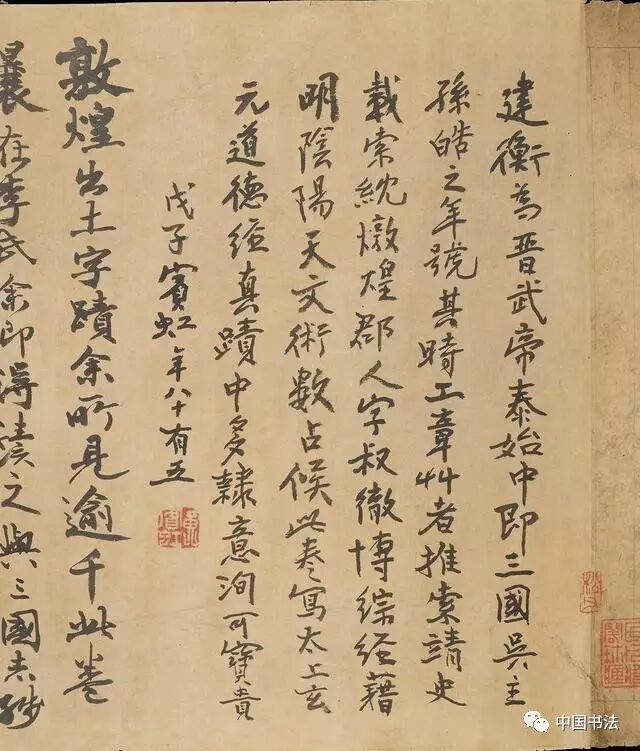 建衡為晋武帝泰始中即三國吳主
孫皓之年號其時工章艸者推索靖史
載索紞燉煌郡人字叔徹博綜經藉
明陰陽天文術數占候此卷寫太上玄
元道德經真蹟中多隸意洵可寶貴
戊子賓虹年八十有五
敦煌出土字蹟余所見逾千此卷
曩在李氏余即得讀之與三國志
中国书法